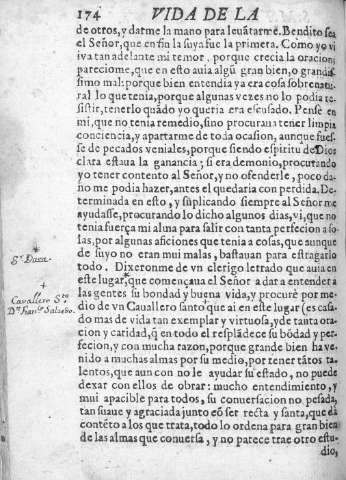 174 VIDA DE LA
de otros, y darme la mano para leuãtarme. Bendito sea
el Señor, que en fin la suya fue la primera. Como yo vi
iva tan adelante mi temor, porque crecia la oracion;
pareciome, que en esto auia algũ gran bien, o grandis
simo mal: porque bien entendia ya era cosa sobrenatu
ral lo que tenia, porque algunas vezes no lo podia re-
sistir, tenerlo quãdo yo queria era escusado. Pensè en
mi, que no tenia remedio, sino procuraua tener limpia
conciencia, y apartarme de toda ocasion, aunque fues-
se de pecados veniales, porque siendo espiritu de Dios
clara estaua la ganancia; si era demonio, procurando
yo tener contento al Señor, y no ofenderle, poco da-
ño me podia hazer, antes el quedaria con perdida. De-
terminada en esto, y suplicando siempre al Señor me
ayudasse, procurando lo dicho algunos dias, vi, que no
tenia fuerça mi alma para salir con tanta perfecion a so-
las, por algunas aficiones que tenia a cosas, que aunque
de suyo no eran mui malas, bastauan para estragarlo
todo. Dixeronme de vn clerigo letrado que auia en
este lugar, que començaua el Señor a dar a entender a
las gentes su bondad y buena vida, y procurè por me-
dio de vn Cauallero santo que ai en este lugar (es casa-
do mas de vida tan exemplar y virtuosa, y de tanta ora-
cion y caridad, q̃ en todo el resplãdece su bõdad y per-
fecion, y con mucha razon, porque grande bien ha ve-
nido a muchas almas por su medio, por tener tãtos ta-
lentos, que aun con no le ayudar su estado, no puede
dexar con ellos de obrar: mucho entendimiento, y
mui apacible para todos, su conuersacion no pesada,
tan suaue y agraciada junto cõ ser recta y santa, que da
contẽto a los que trata, todo lo ordena para gran bien
de las almas que conuersa, y no parece trae otro estu-
dio,
Mº Daza.
Cavallero Sto
Dn Franco Salzedo.